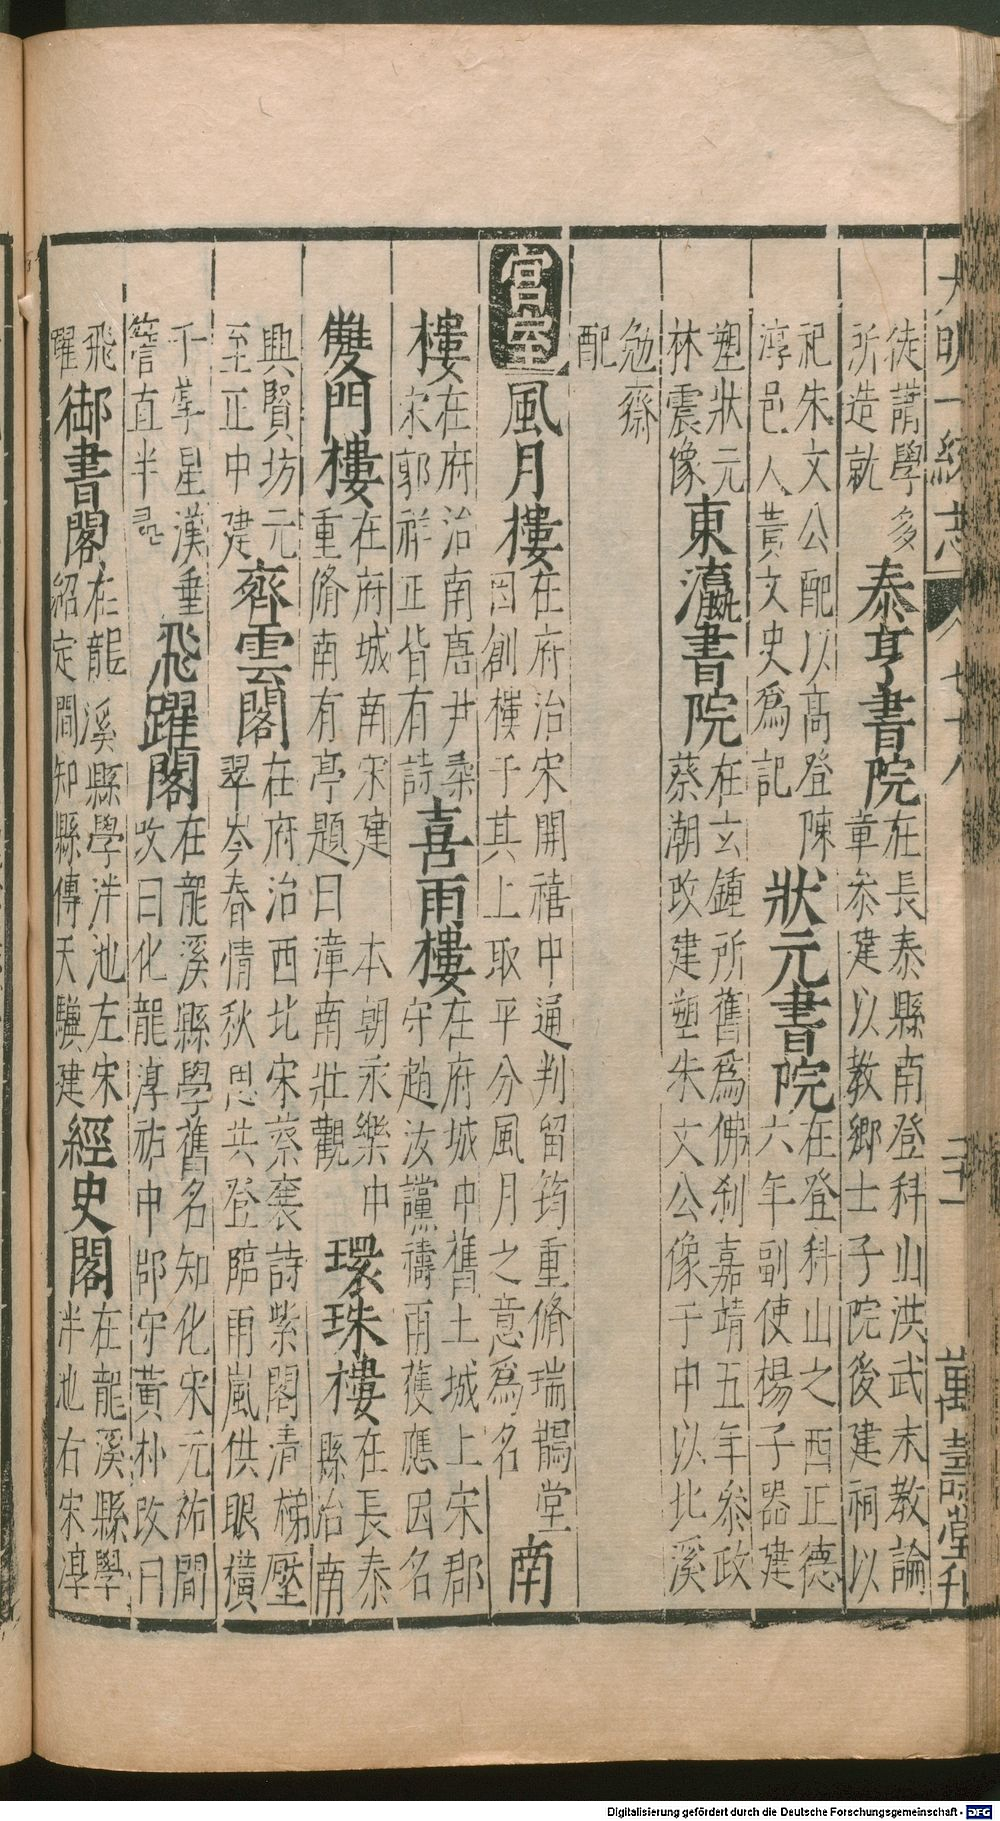 大明一統志 卷七十八 三十一 萬壽堂刊
徒講學多所造就 泰亨書院 在長泰縣南登科山洪武末教諭章參建以教鄉士子院後建祠以
祀朱文公配以高登陳淳邑人黃文史爲記 狀元書院 在登科山之西正德六年副使楊子器建
塑狀元林震像 東瀛書院 在玄鍾所舊爲佛刹嘉靖五年參政蔡潮改建塑朱文公像于中以北溪
勉齋配
宮室 風月樓 在府治宋開禧中通判留筠重脩瑞鵲堂因創樓于其上取平分風月之意爲名 南
樓 在府治南唐尹桑宋郭祥正皆有詩 喜雨樓 在府城中舊土城上宋郡守趙汝讜禱雨獲應因名
雙門樓 在府城南宋建 本朝永樂中重脩南有亭題曰漳南壯觀 環珠樓 在長泰縣治南
興賢坊元至正中建 齊雲閣 在府治西北宋蔡襄詩紫閣清梯壓翠岑春情秋思共登臨雨嵐供眼橫
千嶂星漢垂簷直半尋 飛躍閣 在龍溪縣學舊名知化宋元祐間改曰化龍淳祐中郡守黃朴改曰
飛躍 御書閣 在龍溪縣學泮池左宋紹定間知縣傅天驥建 經史閣 在龍溪縣學泮池右宋淳
Digitalisierung gefördert durch die Deutsche Forschungsgemeinschaft - DFG